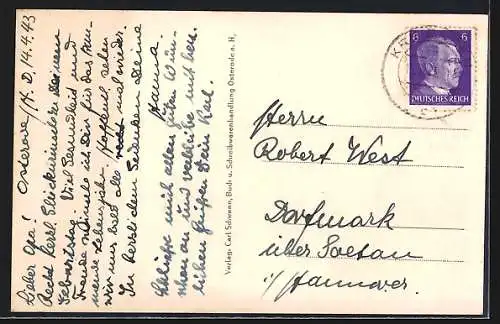 Osterode/H. D, 14.4.43
Lieber Opa!
Recht herzl. Glückwünsche zu Deinem
Geburtstag. Viel Gesundheit und
Freude wünsche ich Dir für das kom-
mende Lebensjahr. Hoffentl. sehen
wir uns bald alle mal wieder.
In herzl. dem Gedenken Deine
Hanna.
Schließe mich allen guten Wün-
schen an und verbleibe mit herz-
lichen Grüßen Dein Karl.
Verlag: Carl Schween, Buch- u. Schreibwarenhandlung Osterode a. H.
6 6
DEUTSCHES REICH
Herrn
Robert West
Dorfmark
über Soltau
i/Hannover.